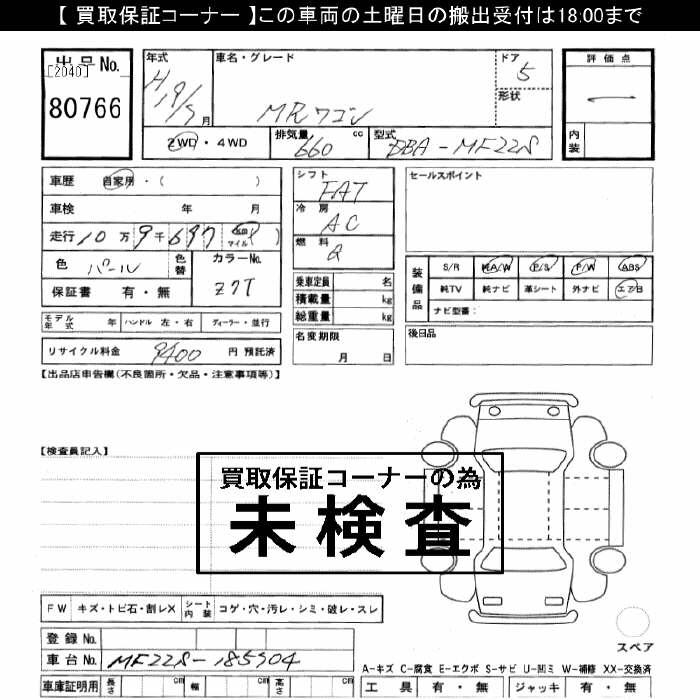 【 買取保証コーナー 】この車両の土曜日の搬出受付は18:00まで
出品No.
[2040]
80766
年式
H19/5月
車名・グレード
MRワゴン
ドア
5
形状
評価点
内装
2WD・4WD
排気量
660 cc
型式
DBA-MF22S
車歴 自家用・( )
車検 年 月
走行 10万9千697 km マイル ( )
色 パール
色替
カラーNo.
Z7T
保証書 有・無
モデル年式 年 ハンドル 左・右 ディーラー・並行
リサイクル料金 9400 円 預託済
シフト
FAT
冷房
AC
燃料
G
乗車定員 名
積載量 kg
総重量 kg
名変期限
月 日
セールスポイント
装備品
S/R 純A/W P/S P/W ABS
純TV 純ナビ 革シート 外ナビ エアB
ナビ型番:
後日品
【出品店申告欄(不良箇所・欠品・注意事項等)】
【検査員記入】
買取保証コーナーの為
未検査
FW キズ・トビ石・割レX シート内装 コゲ・穴・汚レ・シミ・破レ・スレ
登録No.
車台No. MF22S-185904
車庫証明用 長さ cm 幅 cm 高さ cm
スペア
A-キズ C-腐食 E-エクボ S-サビ U-凹ミ W-補修 XX-交換済
工具 有・無 ジャッキ 有・無